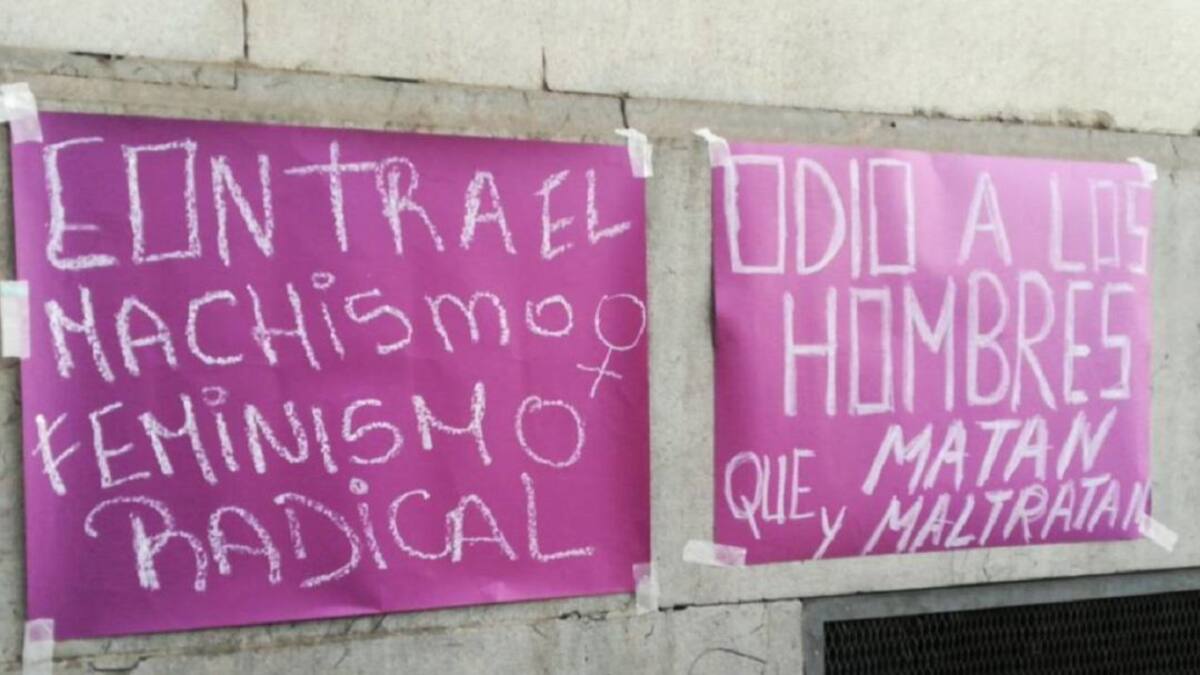 CONTRA EL
MACHISMO
FEMINISMO
RADICAL
ODIO A LOS
HOMBRES
QUE MATAN
Y MALTRATAN